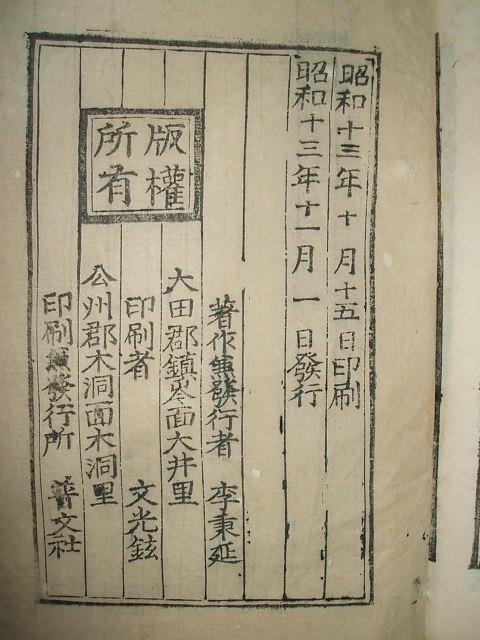 昭和十三年十月十五日印刷
昭和十三年十一月一日發行
著作兼發行者 李秉延
大田郡鎭岑面大井里
印刷者 文光鉉
公州郡木洞面木洞里
印刷兼發行所 普文社
版權
所有